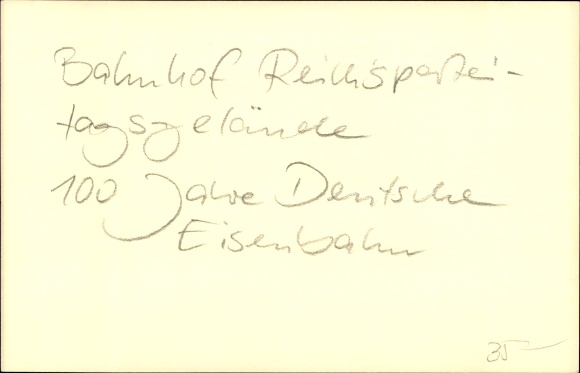 Bahnhof Reichspartei-
tagsgelände
100 Jahre Deutsche
Eisenbahn
35-